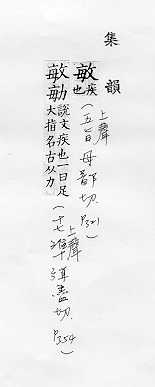 集韻
敏疾也(上聲五旨母鄙切P321)
敏勄說文疾也一曰足大指名古从力(上聲十七準弭盡切P354)